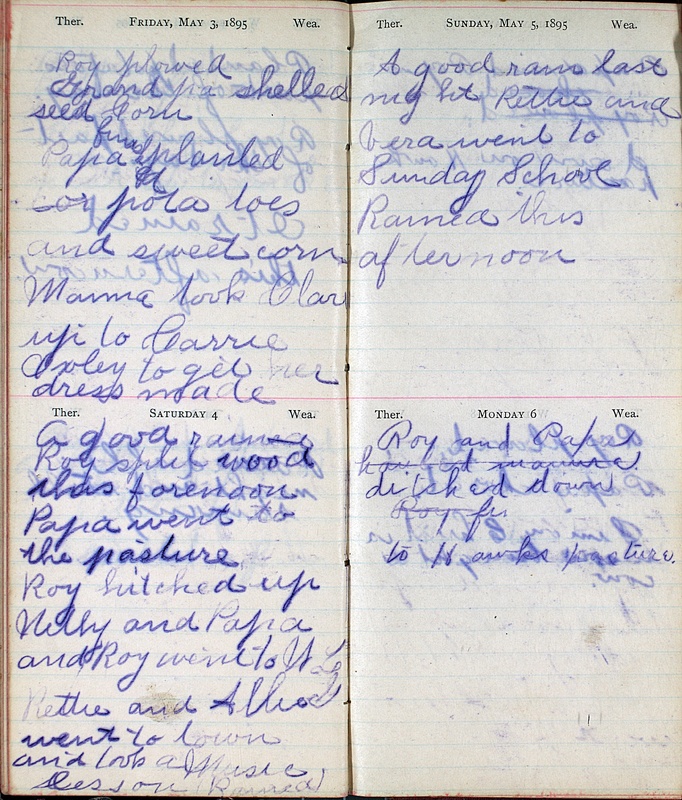 Ther. FRIDAY, MAY 3, 1895 Wea.
Roy plowed
Grand pa shelled
seed corn
Papa planted
pota toes
and sweet corn
Mamma took Clar
up to Carrie
Oxley to get her
dress made
Ther. SATURDAY 4 Wea.
A good rain
Roy split wood
this forenoon
Papa went to
the pasture
Roy hitched up
Nelly and Papa
and Roy went to
Rettie and
went to town
and took a Music
Lesson (Rained)
Ther. SUNDAY, MAY 5, 1895 Wea.
A good rain last
night Rettie and
Vera went to
Sunday School
Rained this
afternoon
Ther. MONDAY 6 Wea.
Roy and Papa
hauled manure
ditched down
Roy
to Hawks pasture.